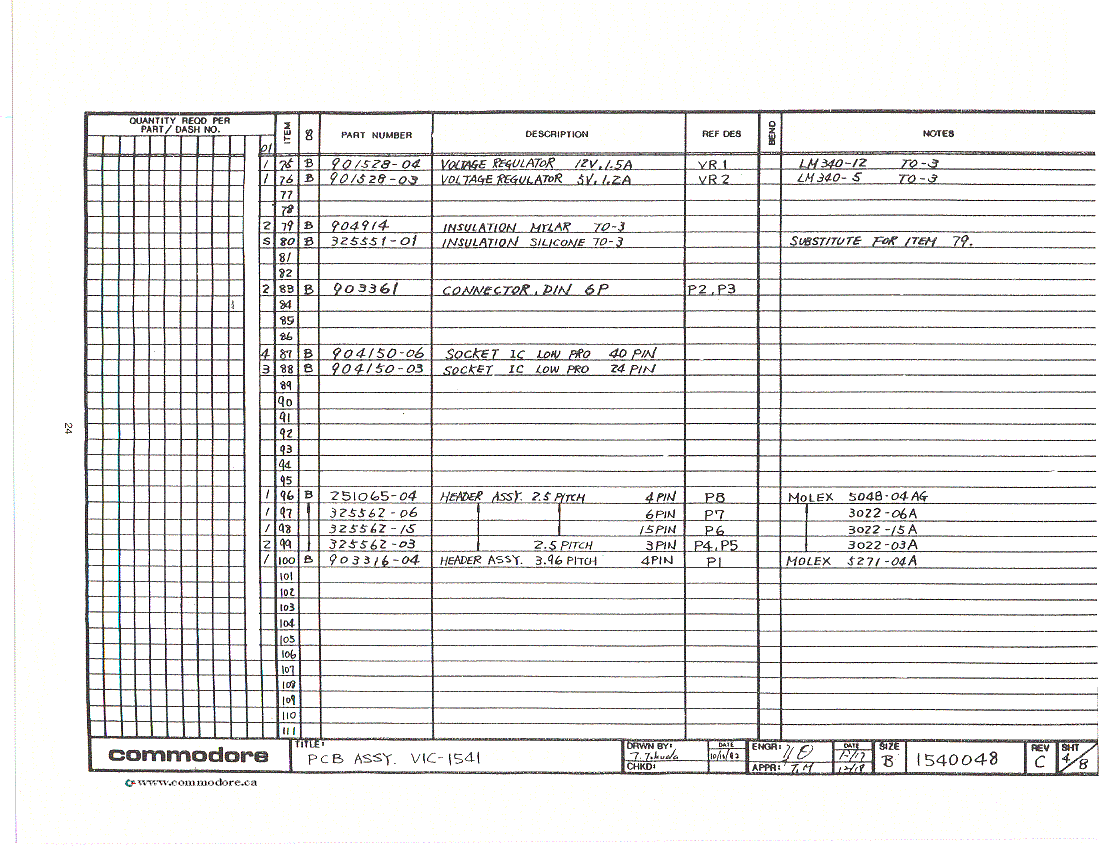 QUANTITY REQD PER
PART/ DASH NO.
01
ITEM
DS
PART NUMBER
DESCRIPTION
REF DES
BEND
NOTES
1 75 B 901528-04 VOLTAGE REGULATOR 12V, 1.5A VR1 LM340-12 TO-3
1 76 B 901528-03 VOLTAGE REGULATOR 5V, 1.2A VR2 LM340-5 TO-3
77
78
2 79 B 904914 INSULATION MYLAR TO-3
S 80 B 325551-01 INSULATION SILICONE TO-3 SUBSTITUTE FOR ITEM 79.
81
82
2 83 B 903361 CONNECTOR, DIN 6P P2, P3
84
85
86
4 87 B 904150-06 SOCKET IC LOW PRO 40 PIN
3 88 B 904150-03 SOCKET IC LOW PRO 24 PIN
89
90
91
92
93
94
95
1 96 B 251065-04 HEADER ASSY. 2.5 PITCH 4 PIN P8 MOLEX 5048-04AG
1 97 325562-06 6PIN P7 3022-06A
1 98 325562-15 15PIN P6 3022-15A
2 99 325562-03 2.5 PITCH 3PIN P4, P5 3022-03A
1 100 B 903316-04 HEADER ASSY. 3.96 PITCH 4PIN P1 MOLEX 5271-04A
101
102
103
104
105
106
107
108
109
110
111
24
commodore
TITLE:
PCB ASSY. VIC-1541
DRWN BY:
CHKD:
DATE
ENGR:
APPR: T.M
DATE
12/18
SIZE
B
1540048
REV
C
SHT
4/8
©www.commodore.ca